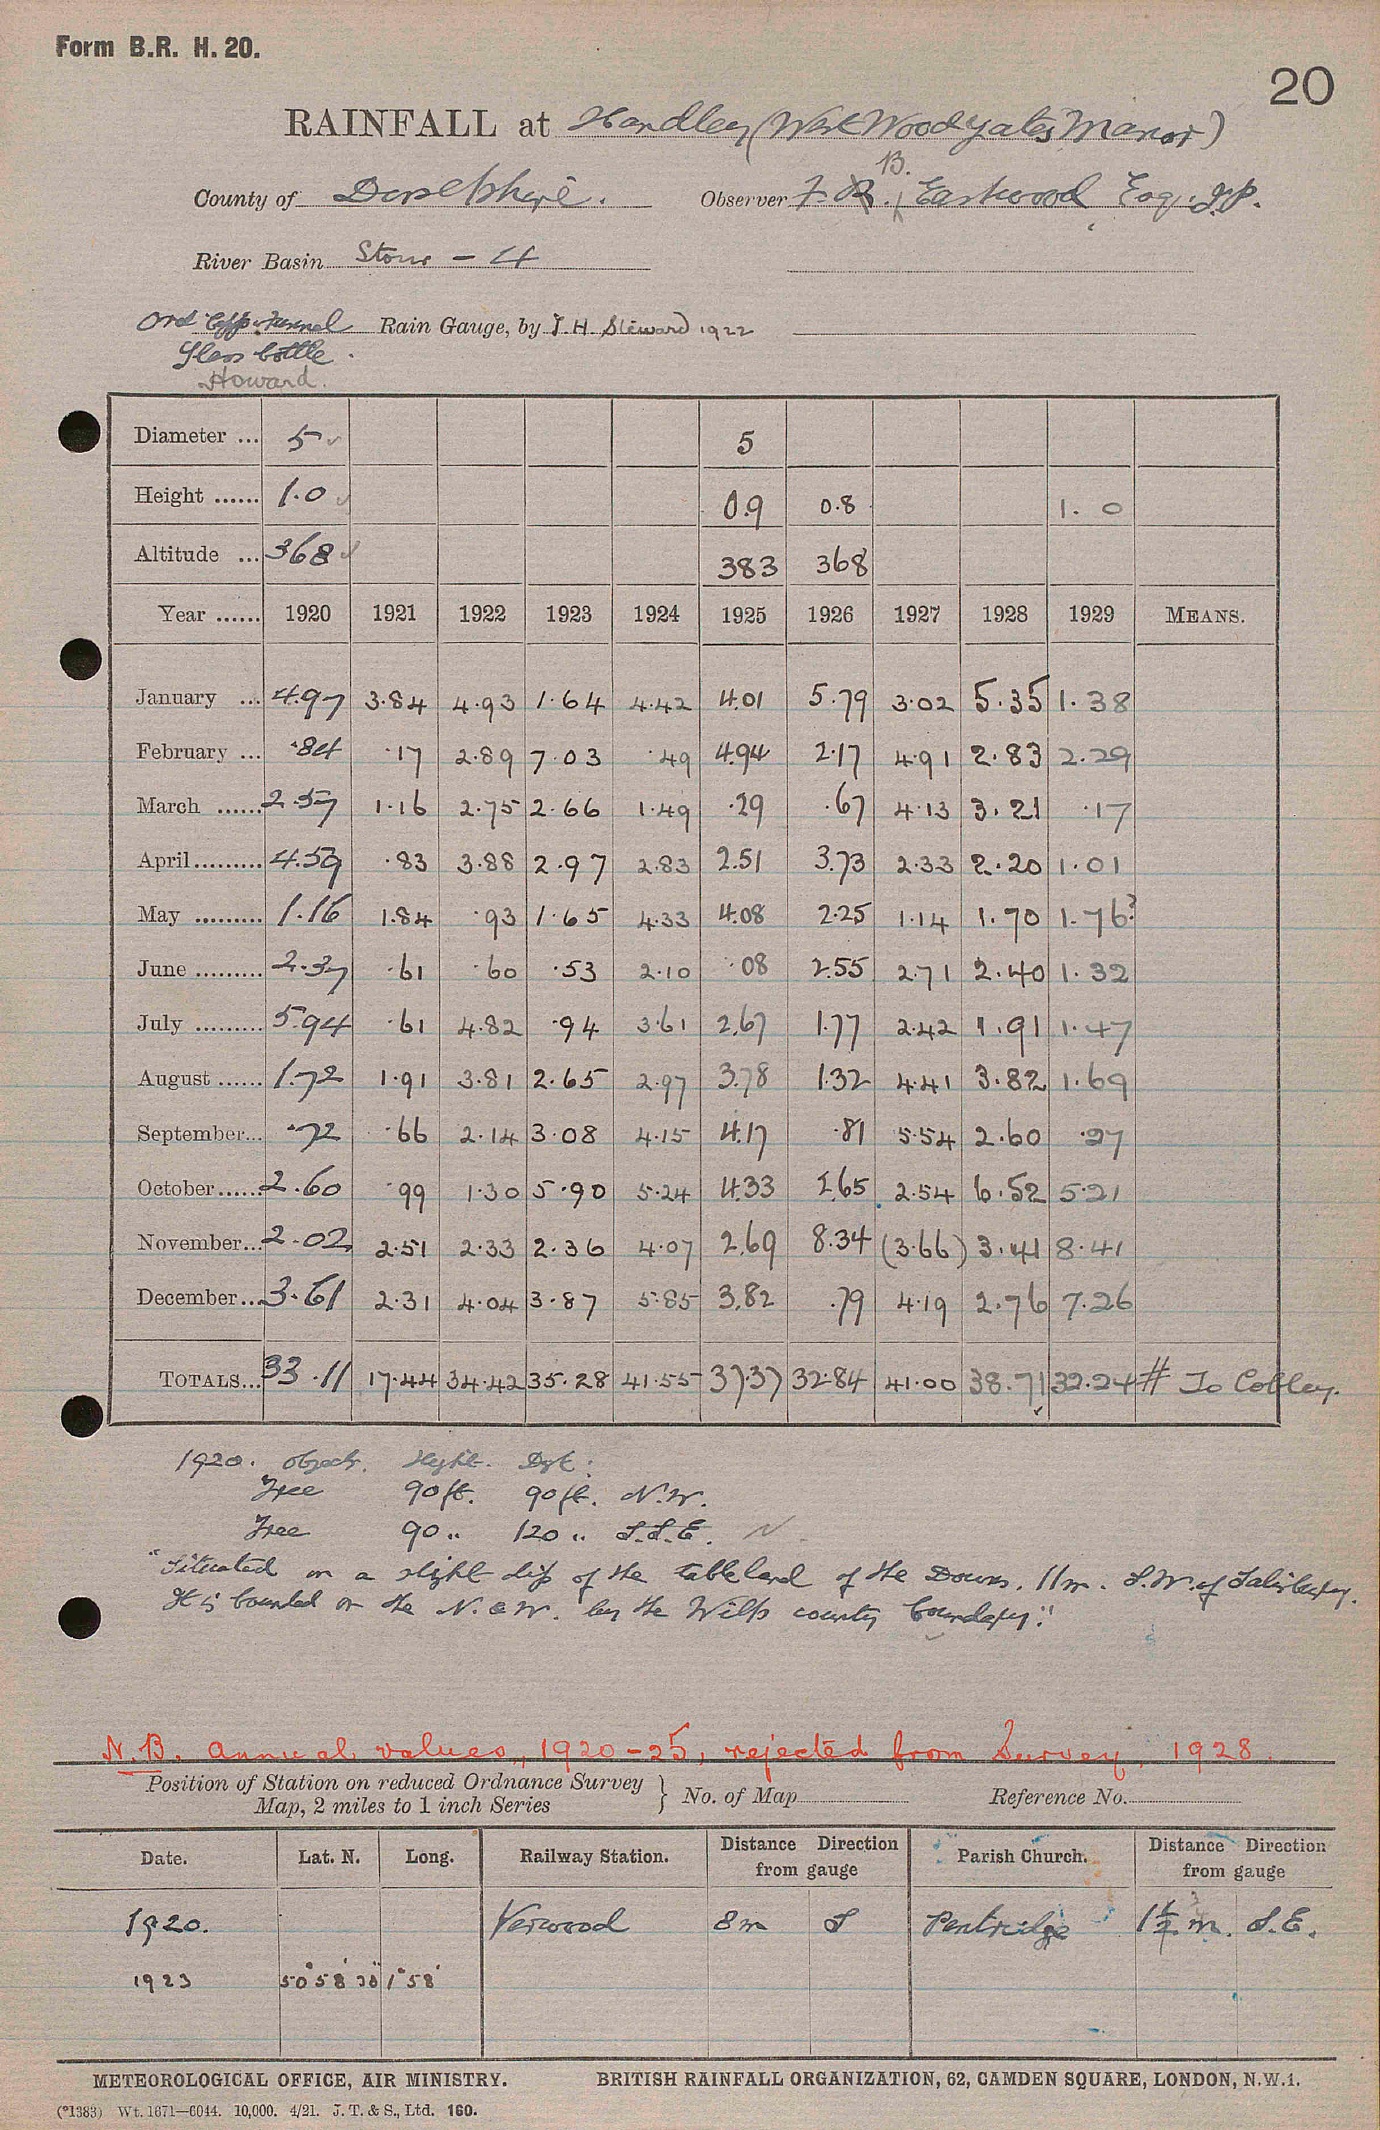 Form B.R. H. 20.
20
RAINFALL at Handley (West Woodyates Manor)
County of Dorsetshire. Observer F. R. B. Eastwood Esq. J.P.
River Basin Stour - 4
Ord Copp. Funnel Rain Gauge, by J. H. Steward 1922
Glass bottle.
Howard.
Diameter ... 5 5
Height ...... 1.0 0.9 0.8 1.0
Altitude ... 368 383 368
Year ...... 1920 1921 1922 1923 1924 1925 1926 1927 1928 1929 MEANS.
January ... 4.97 3.84 4.93 1.64 4.42 4.01 5.79 3.02 5.35 1.38
February ... .84 .17 2.89 7.03 .49 4.94 2.17 4.91 2.83 2.29
March ...... 2.57 1.16 2.75 2.66 1.49 .29 .67 4.13 3.21 .17
April ......... 4.59 .83 3.88 2.97 2.83 2.51 3.73 2.33 2.20 1.01
May ......... 1.16 1.84 .93 1.65 4.33 4.08 2.25 1.14 1.70 1.76?
June ......... 2.37 .61 .60 .53 2.10 .08 2.55 2.71 2.40 1.32
July ......... 5.94 .61 4.82 .94 3.61 2.67 1.77 2.42 1.91 1.47
August ...... 1.72 1.91 3.81 2.65 2.97 3.78 1.32 4.41 3.82 1.69
September... .72 .66 2.14 3.08 4.15 4.17 .81 5.54 2.60 .27
October...... 2.60 .99 1.30 5.90 5.24 4.33 2.65 2.54 6.52 5.21
November... 2.02 2.51 2.33 2.36 4.07 2.69 8.34 (3.66) 3.41 8.41
December... 3.61 2.31 4.04 3.87 5.85 3.82 .79 4.19 2.76 7.26
TOTALS... 33.11 17.44 34.42 35.28 41.55 37.37 32.84 41.00 38.71 32.24 # To Cobley.
1920. Objects. Height. Dist:
Tree 90ft. 90ft. N.W.
Tree 90 " 120 " S.S.E. N
"Situated on a slight dip of the tableland of the Downs. 11m. S.W. of Salisbury.
It is bounded on the N. & W. by the Wilts county boundary."
N.B. Annual values, 1920-25, rejected from Survey, 1928.
Position of Station on reduced Ordnance Survey
Map, 2 miles to 1 inch Series } No. of Map Reference No.
Date. Lat. N. Long. Railway Station. Distance Direction from gauge Parish Church. Distance Direction from gauge
1920. Verwood 8m S Pentridge 1½ m. S.E.
1923 50°58'30" 1°58'
METEOROLOGICAL OFFICE, AIR MINISTRY. BRITISH RAINFALL ORGANIZATION, 62, CAMDEN SQUARE, LONDON, N.W.1.
(*1383) Wt. 1871—6044. 10,000. 4/21. J. T. & S., Ltd. 160.